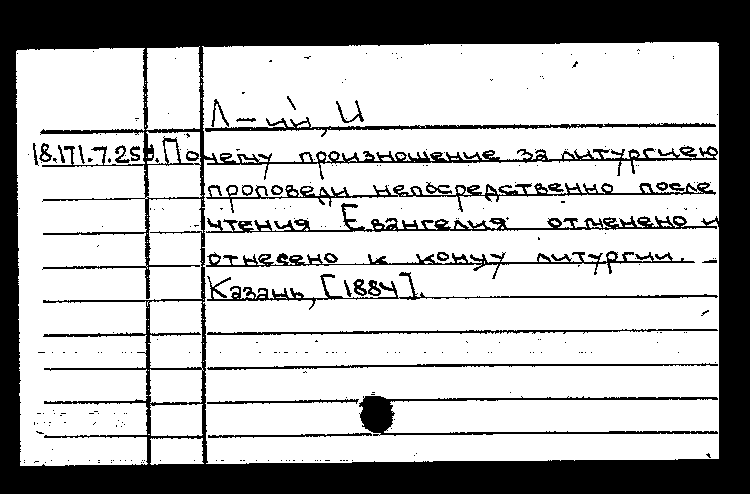 Л-ин, И
18.171.7.25 Почему произношение за литургиею
проповеди непосредственно после
чтения Евангелия отменено и
отнесено к концу литургии.
Казань, [1884].